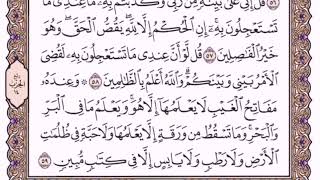 قُلْ إِنِّي عَلَىٰ بَيِّنَةٍ مِّن رَّبِّي وَكَذَّبْتُم بِهِۦ ۚ مَا عِندِي مَا
تَسْتَعْجِلُونَ بِهِۦٓ ۚ إِنِ ٱلْحُكْمُ إِلَّا لِلَّهِ ۖ يَقُصُّ ٱلْحَقَّ ۖ وَهُوَ
خَيْرُ ٱلْفَٰصِلِينَ ٥٧ قُل لَّوْ أَنَّ عِندِي مَا تَسْتَعْجِلُونَ بِهِۦ لَقُضِيَ
ٱلْأَمْرُ بَيْنِي وَبَيْنَكُمْ ۗ وَٱللَّهُ أَعْلَمُ بِٱلظَّٰلِمِينَ ٥٨ ۞ وَعِندَهُۥ
مَفَاتِحُ ٱلْغَيْبِ لَا يَعْلَمُهَآ إِلَّا هُوَ ۚ وَيَعْلَمُ مَا فِي ٱلْبَرِّ
وَٱلْبَحْرِ ۚ وَمَا تَسْقُطُ مِن وَرَقَةٍ إِلَّا يَعْلَمُهَا وَلَا حَبَّةٍ فِي ظُلُمَٰتِ
ٱلْأَرْضِ وَلَا رَطْبٍ وَلَا يَابِسٍ إِلَّا فِي كِتَٰبٍ مُّبِينٍ ٥٩